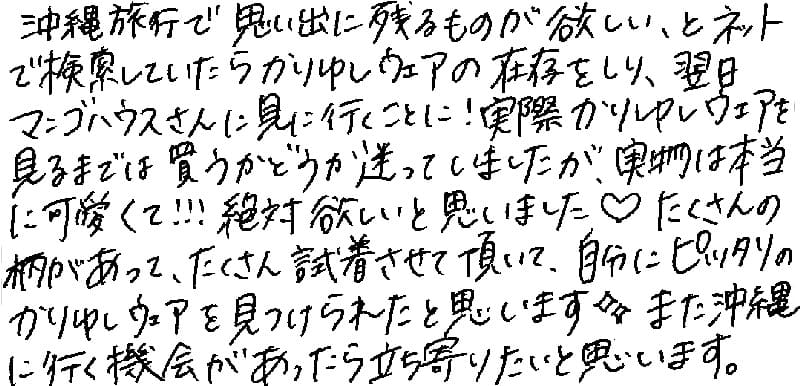 沖縄旅行で思い出に残るものが欲しい、とネット
で検索していたらかりゆしウェアの存在をしり、翌日
マンゴハウスさんに見に行くことに!実際かりゆしウェアを
見るまでは買うかどうか迷ってしましたが、実物は本当
に可愛くて!!!絶対欲しいと思いました♡たくさんの
柄があって、たくさん試着させて頂いて、自分にピッタリの
かりゆしウェアを見つけられたと思います✨また沖縄
に行く機会があったら立ち寄りたいと思います。